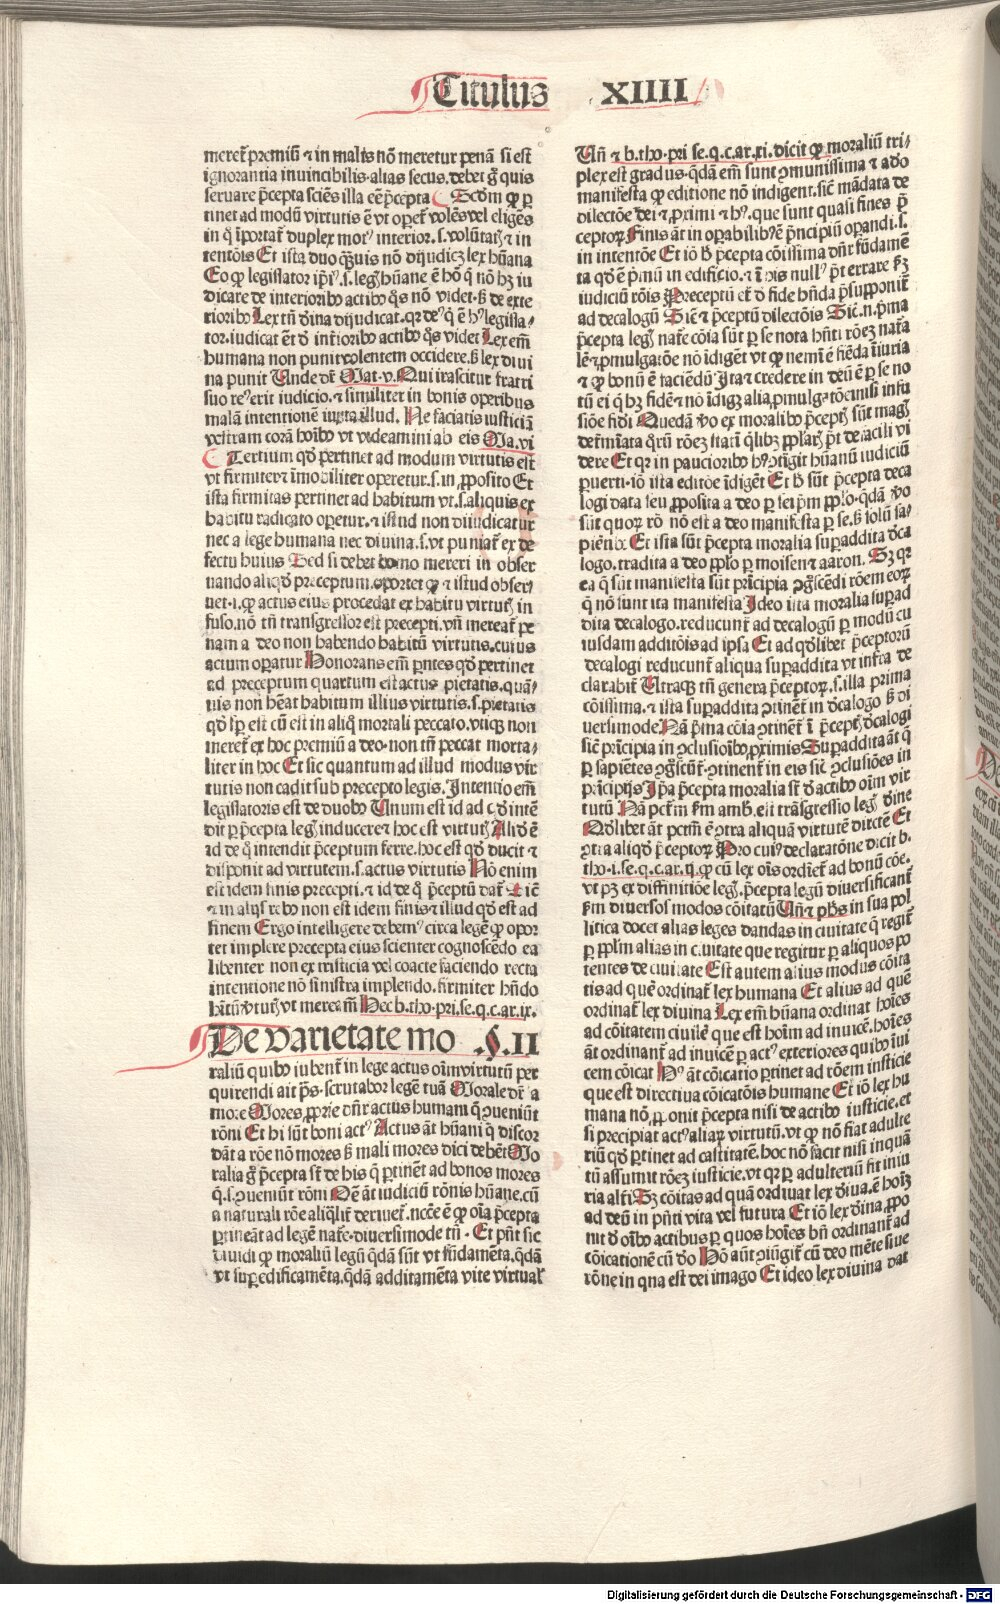 Titulus XIIII
meret̃ premiũ ⁊ in malis nõ meretur penã si est
ignorantia inuincibilis. alias secus. debet g̊ quis
seruare p̃cepta sciẽs illa eẽ p̃cepta Scd̃m qd̓ ꝑ
tinet ad modũ virtutis ẽ vt oꝑet̃ volẽs vel eligẽs
in q̃ ĩportat̃ duplex motꝰ interior .s. volũtatꝭ ⁊ in
tentõis Et ista duo q̃uis nõ diiudicꝫ lex hũana
Eo ꝙ legislator ip̃iꝰ .s. legꝭ hũane ẽ hõ q̓ nõ hꝫ iu
dicare de interioribꝰ actibꝰ q̃s nõ videt. sꝫ de exte
rioribꝰ Lex tñ d̓ina diiudicat. qꝛ deꝰ q̓ ẽ hꝰ legisla⸗
tor. iudicat et̃ d̓ int̓ioribꝰ actibꝰ q̃s videt Lex em̃
humana non punit volentem occidere. sꝫ lex diui
na punit Unde dr̃ Mat. v. Qui irascitur fratri
suo re⁹erit iudicio. ⁊ similiter in bonis operibus
malã intentionẽ iuxta illud. Ne faciatis iusticiã
vestram corã hoĩbꝰ vt videamini ab eis Ma. vi
Tertium qd̓ pertinet ad modum virtutis est
vt firmiter ⁊ ĩmobiliter operetur .s. in ꝓposito Et
ista firmitas pertinet ad habitum vt .s. aliquis ex
habitu radicato oꝑetur. ⁊ istud non diiudicatur
nec a lege humana nec diuina .s. vt puniat̃ ex de
fectu huius Sed si debet homo mereri in obser
uando aliqd̓ preceptum. oportet ꝙ ⁊ istud obser⸗
uet .i. ꝙ actus eius procedat ex habitu virtutꝭ in
fuso. nõ tñ transgressor est precepti. vñ mereat̃ pe
nam a deo non habendo habitũ virtutis. cuius
actum oꝑatur Honorans em̃ pãtes qd̓ pertinet
ad preceptum quartum est actus pietatis. quã⸗
uis non hẽat habitum illius virtutis .s. pietatis
qd̓ sꝑ est cũ est in aliq̓ mortali peccato. vtiqꝫ non
meret̃ ex hoc premiũ a deo. non tñ peccat morta⸗
liter in hoc Et sic quantum ad illud modus vir
tutis non cadit sub precepto legis. Intentio em̃
legislatoris est de duobꝰ Unum est id ad qd̓ intẽ
dit ꝑ p̃cepta legꝭ inducere ⁊ hoc est virtutꝭ Aliđ ẽ
id de q̊ intendit p̃ceptum ferre. hoc est qd̓ ducit ⁊
disponit ad virtutem .s. actus virtutis Nõ enim
est idem finis precepti. ⁊ id de q̊ p̃ceptũ dat̃. Siẽ
⁊ in alijs rebꝰ non est idem finis ⁊ illud qd̓ est ad
finem Ergo intelligere debemꝰ circa legẽ ꝙ opor
tet implere precepta eius scienter cognoscẽdo ea
libenter non ex tristicia vel coacte faciendo recta
intentione nõ sinistra implendo. firmiter hñdo
hr̃tũ v̓tutꝭ vt mereamĩ Hec b. tho. pri. se. q. c. ar. ix.
De varietate mo .§. II
raliũ quibꝰ iubent̃ in lege actus oĩm virtutũ per
quirendi ait p̃s. scrutabor legẽ tuã Morale dr̃ a
more Mores ꝓprie dn̄r actus humani q̓ ↄueniũt
rõni Et hi sũt boni actꝰ Actus ãt hũani q̓ discor
dãt a rõe nõ mores sꝫ mali mores dici debẽt Mo
ralia g̊ p̃cepta st̃ de his q̃ ꝑtinẽt ad bonos mores
q̃ .s. ↄueniũt rõni Oẽ ãt iudiciũ rõnis hũane. cũ
a naturali rõe aliq̓lit̃ deriuet̃. ncc̃e ẽ ꝙ oĩa p̃cepta
ꝑtineãt ad legẽ nat̃e. diuersimode tñ. Et pñt sic
diuidi ꝙ moraliũ legũ q̃dã sũt vt fũdamẽta. q̃dã
vt suꝑedificamẽta. q̃dã additamẽta vite virtual̃
Uñ ⁊ b. tho. pri se. q. c. ar. xi. dicit ꝙ moraliũ tri⸗
plex est gradus. q̃dã em̃ sunt ↄmunissima ⁊ adeo
manifesta ꝙ editione nõ indigent. siẽ mãdata de
dilectõe dei ⁊ ꝓximi ⁊ hꝰ. que sunt quasi fines p̃
ceptoꝝ Finis ãt in oꝑabilibꝰ ẽ p̃ncipiũ oꝑandi .s.
in intentõe Et iõ h̓ p̃cepta cõissima dn̄r fũdamẽ
ta qd̓ ẽ p̃mũ in edificio. ⁊ ĩ his nullꝰ p̃t errare s̃ꝫ
iudiciũ rõis Preceptũ et̃ d̓ fide hñda p̃supponit̃
ad decalogũ Siẽ ⁊ p̃ceptũ dilectõis Siẽ .n. p̃ma
p̃cepta legꝭ nat̃e cõia sũt ꝑ se nota hñti rõeꝫ nat̃a
lẽ ⁊ ꝓmulgatõe nõ ĩdigẽt vt ꝙ nemĩ ẽ fiẽda iĩuria
⁊ ꝙ bonũ ẽ faciẽdũ Ita ⁊ credere in deũ ẽ ꝑ se no
tũ ei q̓ hꝫ fidẽ ⁊ nõ ĩdigꝫ alia ꝓmulgatõe nisi infu
siõe fidei Quedã v̓o ex moralibꝰ p̃ceptꝭ sũt magꝭ
det̓mĩata q̃rũ rõeꝫ statĩ q̓libꝫ ppl̃arꝭ p̃t defacili vi
dere Et qꝛ in paucioribꝰ hꝰ ↄtigit hũanũ iudiciũ
ꝑuerti. iõ ista editõe ĩdigẽt Et h̓ sũt p̃cepta deca
logi data seu ꝓposita a deo ꝑ seip̃m ppl̃o. q̃dã v̓o
sũt quoꝝ rõ nõ est a deo manifesta ꝑ se. sꝫ solũ sa⸗
piẽtibꝰ Et ista sũt p̃cepta moralia suꝑaddita d̓ca
logo. tradita a deo ppl̃o ꝑ moisen ⁊ aaron. Sꝫ qꝛ
ea q̃ sũt manifesta sũt prĩcipia ↄgꝭscẽdi rõem eoꝝ
q̃ nõ sunt ita manifesta Ideo ista moralia suꝑad
dita decalogo. reducunt̃ ad decalogũ ꝑ modũ cu
iusdam additõis ad ipsa Et ad qd̓libet p̃ceptorũ
decalogi reducunt̃ aliqua suꝑaddita vt infra de
clarabit̃ Utraqꝫ tñ genera p̃ceptoꝝ .s. illa prima
cõissima. ⁊ ista suꝑaddita ↄtinẽt̃ in d̓calogo sꝫ di
uersimode Nã p̃ma cõia ↄtinẽt̃ ĩ p̃ceptꝭ d̓calogi
siẽ prĩcipia in ↄclusioĩbꝰ ꝓximis Suꝑaddita ãt q̃
ꝑ sapiẽtes ↄgꝭscũt̃. ↄtinent̃ in eis siẽ ↄclusiões in
prĩcipijs Ip̃a p̃cepta moralia st̃ d̓ actibꝰ oĩm vir
tutũ Nã pctm̃ s̃m amb. est trãsgressio legꝭ d̓ine
Qd̓libet ãt pctm̃ ẽ ↄtra aliquã virtutẽ dirctẽ Et
ↄtra aliqd̓ p̃ceptoꝝ Pro cuiꝰ declaratõne dicit b.
tho. i. se. q. c. ar. ij. ꝙ cũ lex oĩs ordiet̃ ad bonũ cõe.
vt pꝫ ex diffinitiõe legꝭ. p̃cepta legũ diuersificant̃
s̃m diuersos modos cõitatũ Uñ ⁊ ph̃s in sua pol
litica docet alias leges dandas in ciuitate q̃ regit̃
ꝑ ppl̃m alias in ciuitate que regitur ꝑ aliquos po
tentes de ciuitate Est autem alius modus cõita
tis ad quẽ ordinat̃ lex humana Et alius ad quẽ
ordinat̃ lex diuina Lex em̃ hũana ordinat hoĩes
ad cõitatem ciuilẽ que est hoĩm ad inuicẽ. hoĩes
ãt ordinant̃ ad inuicẽ ꝑ actꝰ exteriores quibꝰ ĩui
cem cõicat̃ Hꝰ ãt cõicatio ꝑtinet ad rõem iusticie
que est directiua cõicatõis humane Et iõ lex hu
mana nõ ꝓponit p̃cepta nisi de actibꝰ iusticie. et
si precipiat actꝰ aliaꝝ virtutũ. vt ꝙ nõ fiat adulte
riũ qd̓ ꝑtinet ad castitatẽ. hoc nõ facit nisi inquã
tũ assumit rõeꝫ iusticie. vt qꝛ ꝑ adulteriũ fit iniu
ria alt̓i Sꝫ cõitas ad quã ordinat lex d̓iua. ẽ hoĩꝫ
ad deũ in p̃nti vita vel futura Et iõ lex d̓ina. ꝓpo
nit d̓ oĩbꝰ actibus ꝑ quos hoĩes bñ ordinant̃ ad
cõicationẽ cũ d̓o Hõ aũt ↄiũgit̃ cũ deo mẽte siue
rõne in qua est dei imago Et ideo lex diuina dat
Digitalisierung gefördert durch die Deutsche Forschungsgemeinschaft - DFG